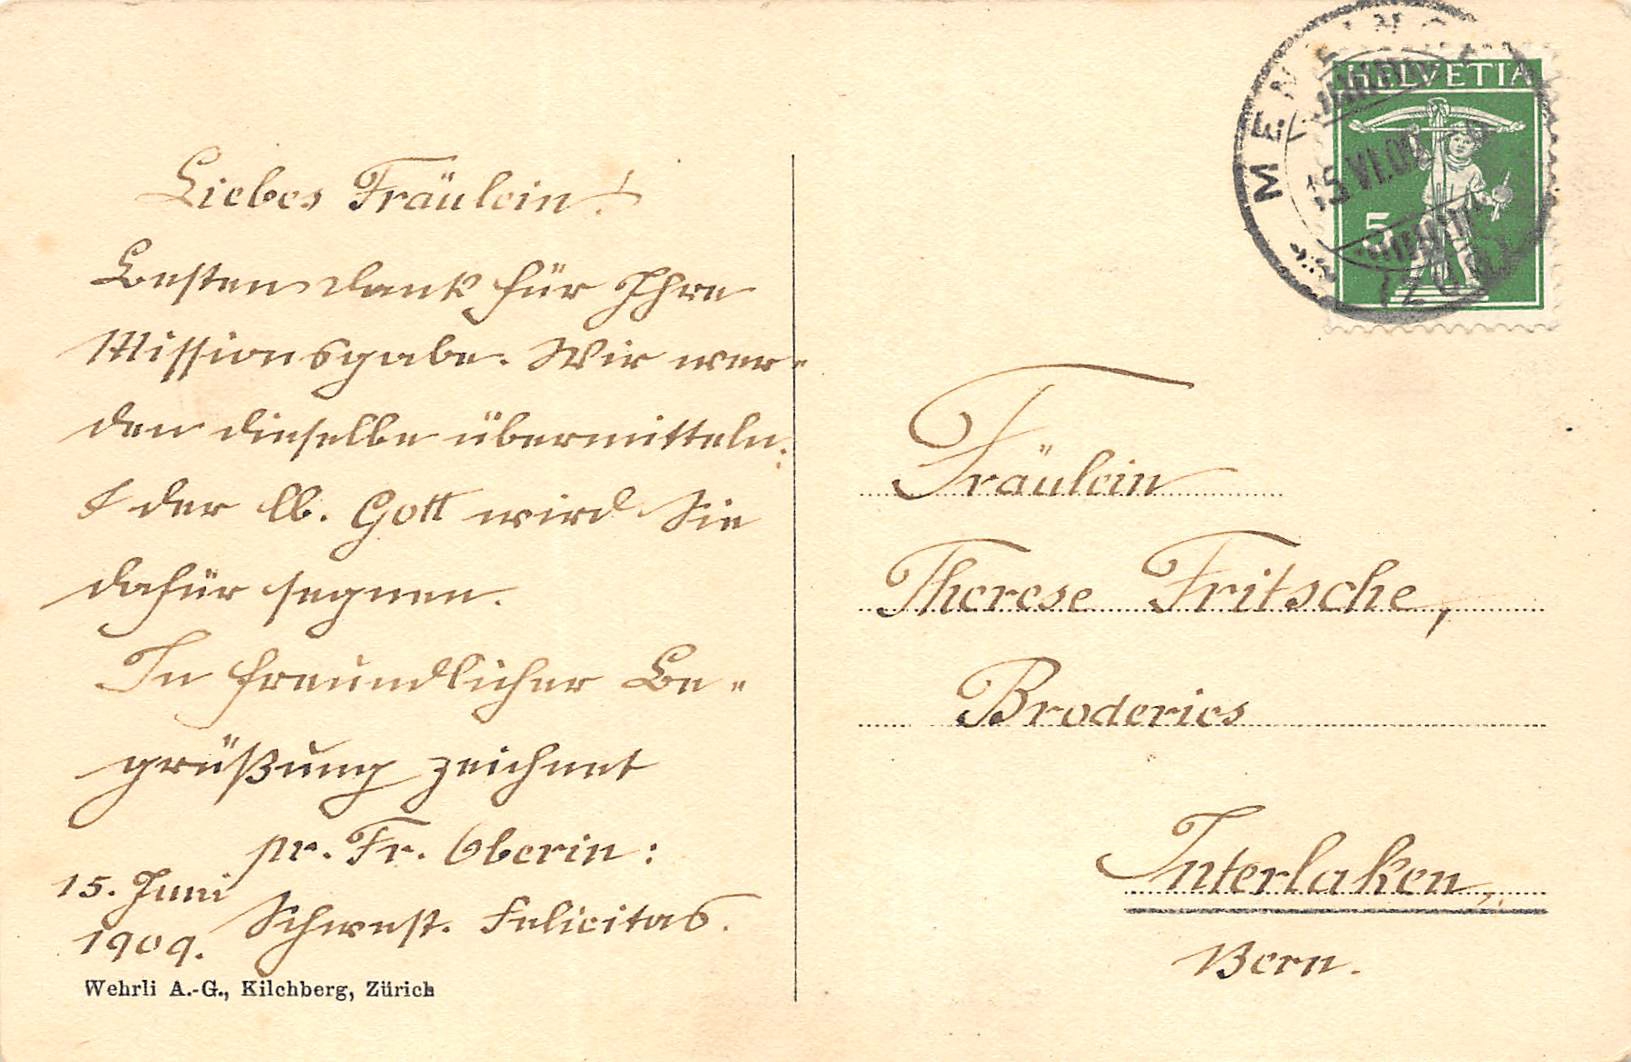 Liebes Fräulein!
Besten Dank für Ihre
Missionsgabe. Wir wer-
den dieselbe übermitteln:
& der lb. Gott wird Sie
dafür segnen.
In freundlicher Be-
grüßung zeichnet
pr. Fr. Oberin:
Schwest. Felicitas.
15. Juni
1909.
Wehrli A.-G., Kilchberg, Zürich
MENZINGEN
15 VI.09
(ZUG)
HELVETIA
5
Fräulein
Therese Fritsche,
Broderies
Interlaken,
Bern.